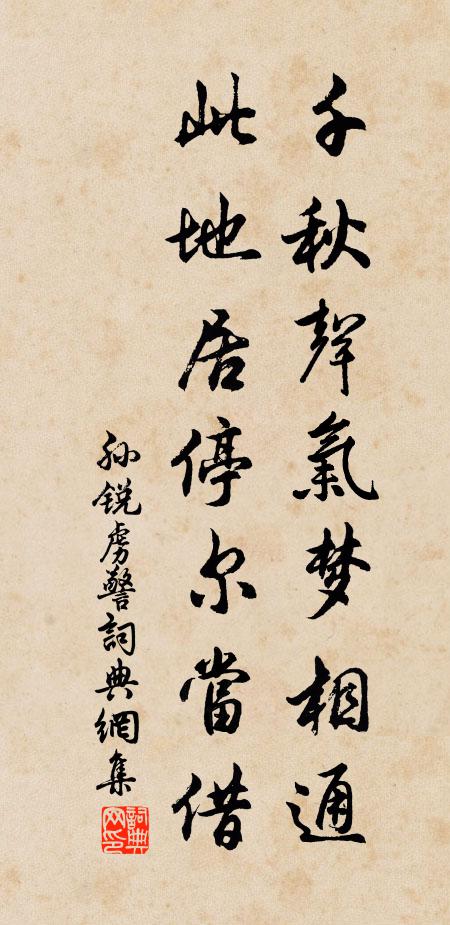 千秋聲氣梦相通
此地居停尔當借
孙锐虏警詞典網集
詞典网印